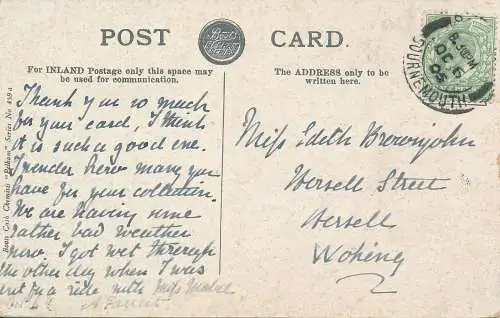 POST CARD.
Boots
For INLAND Postage only this space may
be used for communication.
The ADDRESS only to be
written here.
BOURNEMOUTH
8.30 PM
OC 6
05
Boots Cash Chemists "Pelham" Series No 459 a
Thank you so much
for your card, I think
it is such a good one.
I wonder how many you
have for your collection.
We are having some
rather bad weather
now. I got wet through
the other day when I was
out for a ride with Miss
Miss Edith Brownjohn
Horsell Street
Horsell
Woking